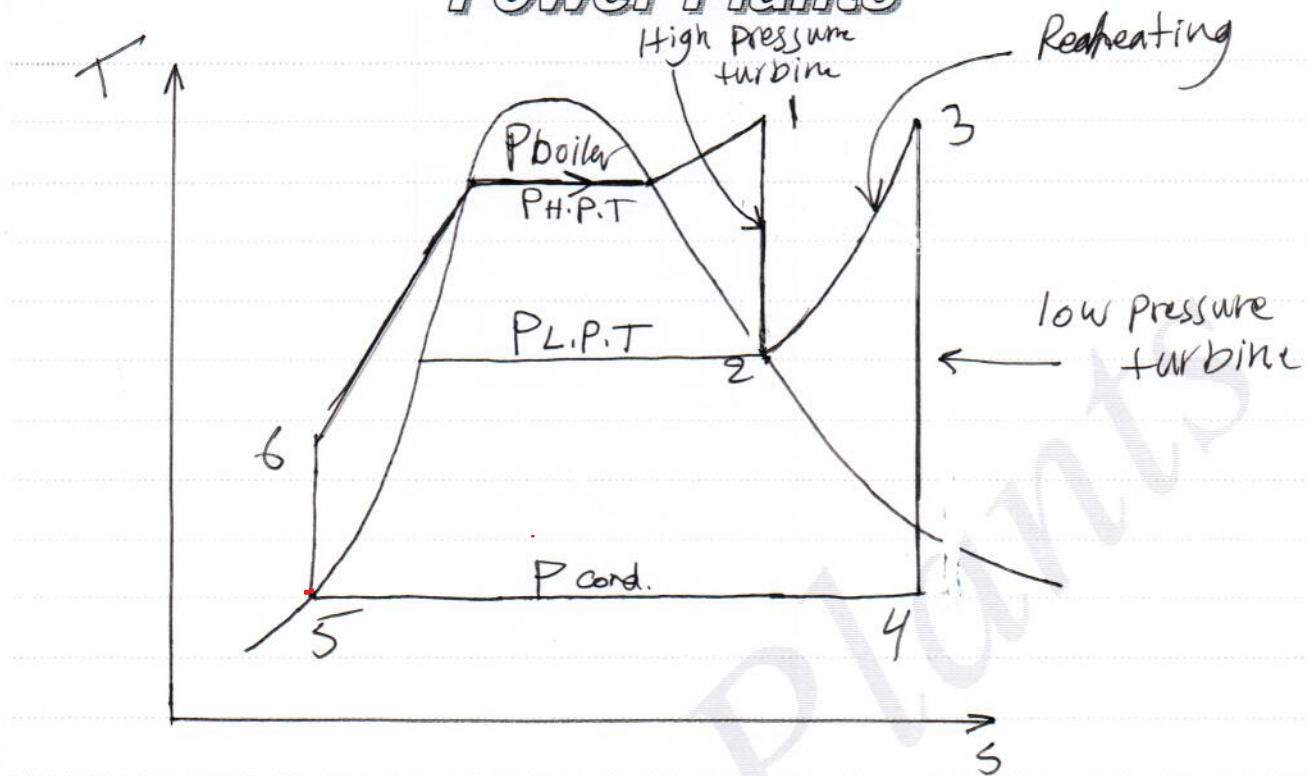 Power Plants
High pressure
turbine
Reaheating
T
1
3
Pboiler
PH.P.T
PL.P.T
2
low pressure
turbine
6
Pcond.
5
4
S
Plants